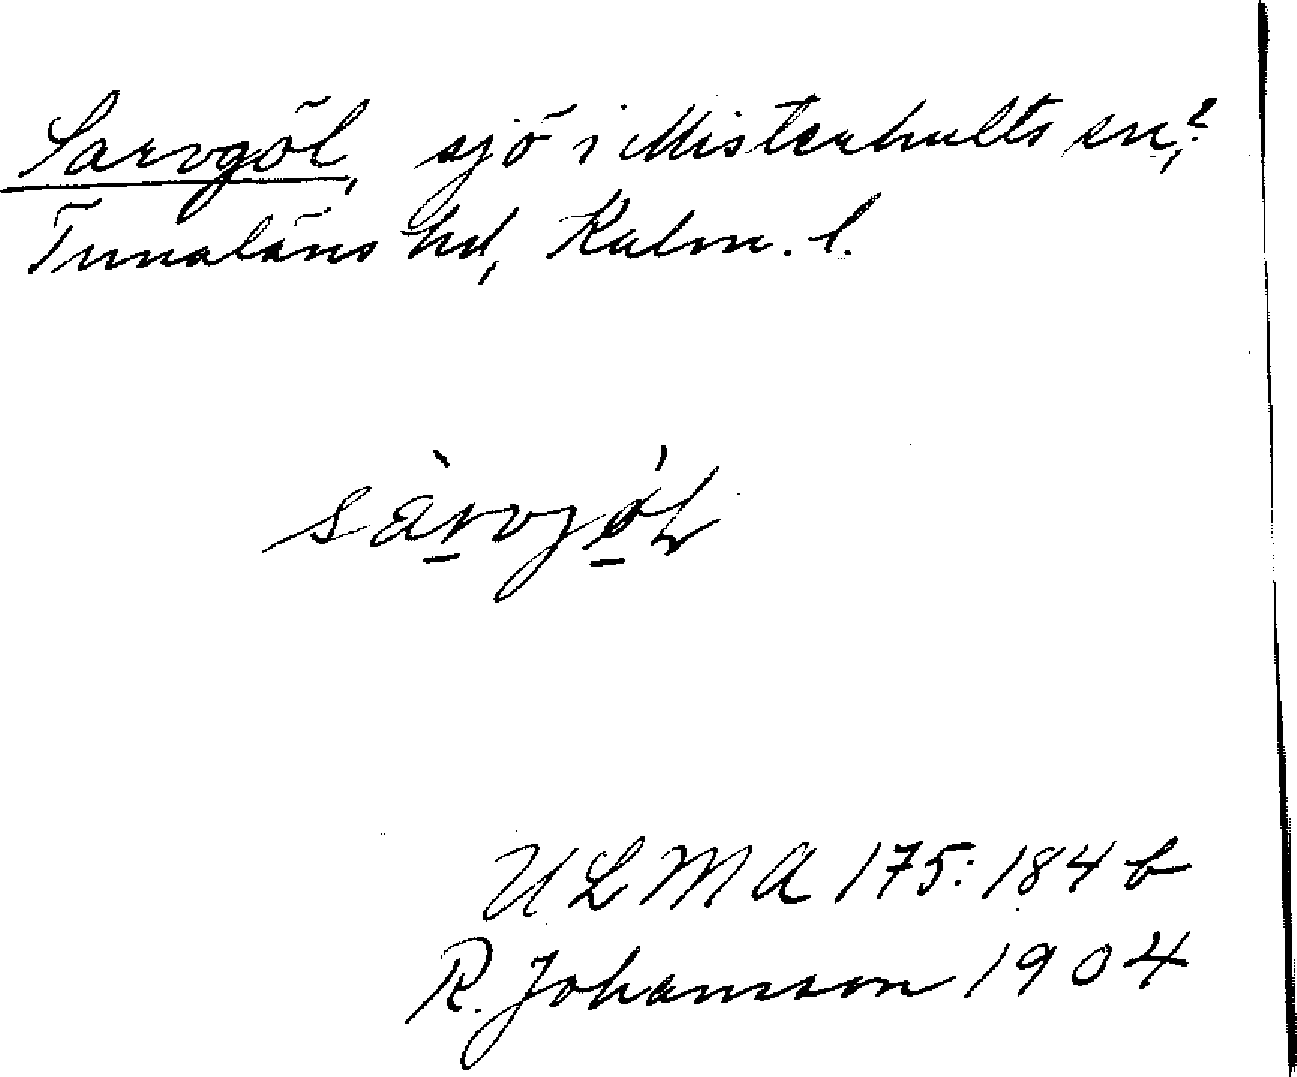 Sarvgöl, sjö i Misterhults sn,?
Tunaläns hd, Kalm. l.
sàrvjǿL
ULMA 175:184 b
R. Johansson 1904